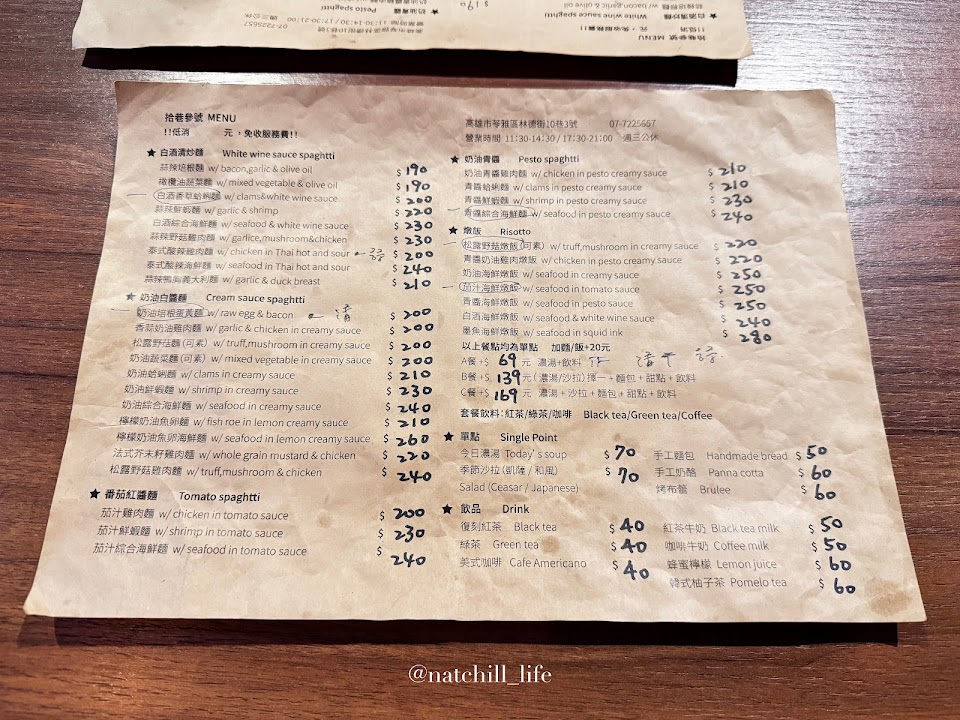 拾巷參號 MENU
!!低消 元，免收服務費!!
★ 白酒清炒麵 White wine sauce spaghtti
蒜辣培根麵 w/ bacon,garlic & olive oil $190
橄欖油蔬菜麵 w/ mixed vegetable & olive oil $190
白酒香草蛤蜊麵 w/ clams&white wine sauce $200
蒜辣鮮蝦麵 w/ garlic & shrimp $220
白酒綜合海鮮麵 w/ seafood & white wine sauce $230
蒜辣野菇雞肉麵 w/ garlice,mushroom&chicken $230
泰式酸辣雞肉麵 w/ chicken in Thai hot and sour $200
泰式酸辣海鮮麵 w/ seafood in Thai hot and sour $240
蒜辣鴨胸義大利麵 w/ garlic & duck breast $210
★ 奶油白醬麵 Cream sauce spaghtti
奶油培根蛋黃麵 w/ raw egg & bacon $200
香蒜奶油雞肉麵 w/ garlic & chicken in creamy sauce $200
松露野菇麵(可素) w/ truff,mushroom in creamy sauce $200
奶油蔬菜麵(可素) w/ mixed vegetable in creamy sauce $200
奶油蛤蜊麵 w/ clams in creamy sauce $210
奶油鮮蝦麵 w/ shrimp in creamy sauce $230
奶油綜合海鮮麵 w/ seafood in creamy sauce $240
檸檬奶油魚卵麵 w/ fish roe in lemon creamy sauce $210
檸檬奶油魚卵海鮮麵 w/ seafood in lemon creamy sauce $260
法式芥末籽雞肉麵 w/ whole grain mustard & chicken $220
松露野菇雞肉麵 w/ truff,mushroom & chicken $240
★ 番茄紅醬麵 Tomato spaghtti
茄汁雞肉麵 w/ chicken in tomato sauce $200
茄汁鮮蝦麵 w/ shrimp in tomato sauce $230
茄汁綜合海鮮麵 w/ seafood in tomato sauce $240
高雄市苓雅區林德街10巷3號 07-7225657
營業時間 11:30-14:30 / 17:30-21:00 週三公休
★ 奶油青醬 Pesto spaghtti
奶油青醬雞肉麵 w/ chicken in pesto creamy sauce $210
青醬蛤蜊麵 w/ clams in pesto creamy sauce $210
青醬鮮蝦麵 w/ shrimp in pesto creamy sauce $230
青醬綜合海鮮麵 w/ seafood in pesto creamy sauce $240
★ 燉飯 Risotto
松露野菇燉飯(可素) w/ truff,mushroom in creamy sauce $220
青醬奶油雞肉燉飯 w/ chicken in pesto creamy sauce $220
奶油海鮮燉飯 w/ seafood in creamy sauce $250
茄汁海鮮燉飯 w/ seafood in tomato sauce $250
青醬海鮮燉飯 w/ seafood in pesto sauce $250
白酒海鮮燉飯 w/ seafood & white wine sauce $240
墨魚海鮮燉飯 w/ seafood in squid ink $280
以上餐點均為單點 加麵/飯+20元
A餐+$ 69 元 濃湯+飲料
B餐+$ 139 元 (濃湯/沙拉)擇一+麵包+甜點+飲料
C餐+$ 169 元 濃湯+沙拉+麵包+甜點+飲料
套餐飲料:紅茶/綠茶/咖啡 Black tea/Green tea/Coffee
★ 單點 Single Point
今日濃湯 Today's soup $70
季節沙拉(凱薩/和風) $70
Salad (Ceasar / Japanese)
手工麵包 Handmade bread $50
手工奶酪 Panna cotta $60
烤布蕾 Brulee $60
★ 飲品 Drink
復刻紅茶 Black tea $40
綠茶 Green tea $40
美式咖啡 Cafe Americano $40
紅茶牛奶 Black tea milk $50
咖啡牛奶 Coffee milk $50
蜂蜜檸檬 Lemon juice $60
韓式柚子茶 Pomelo tea $60
@natchill_life